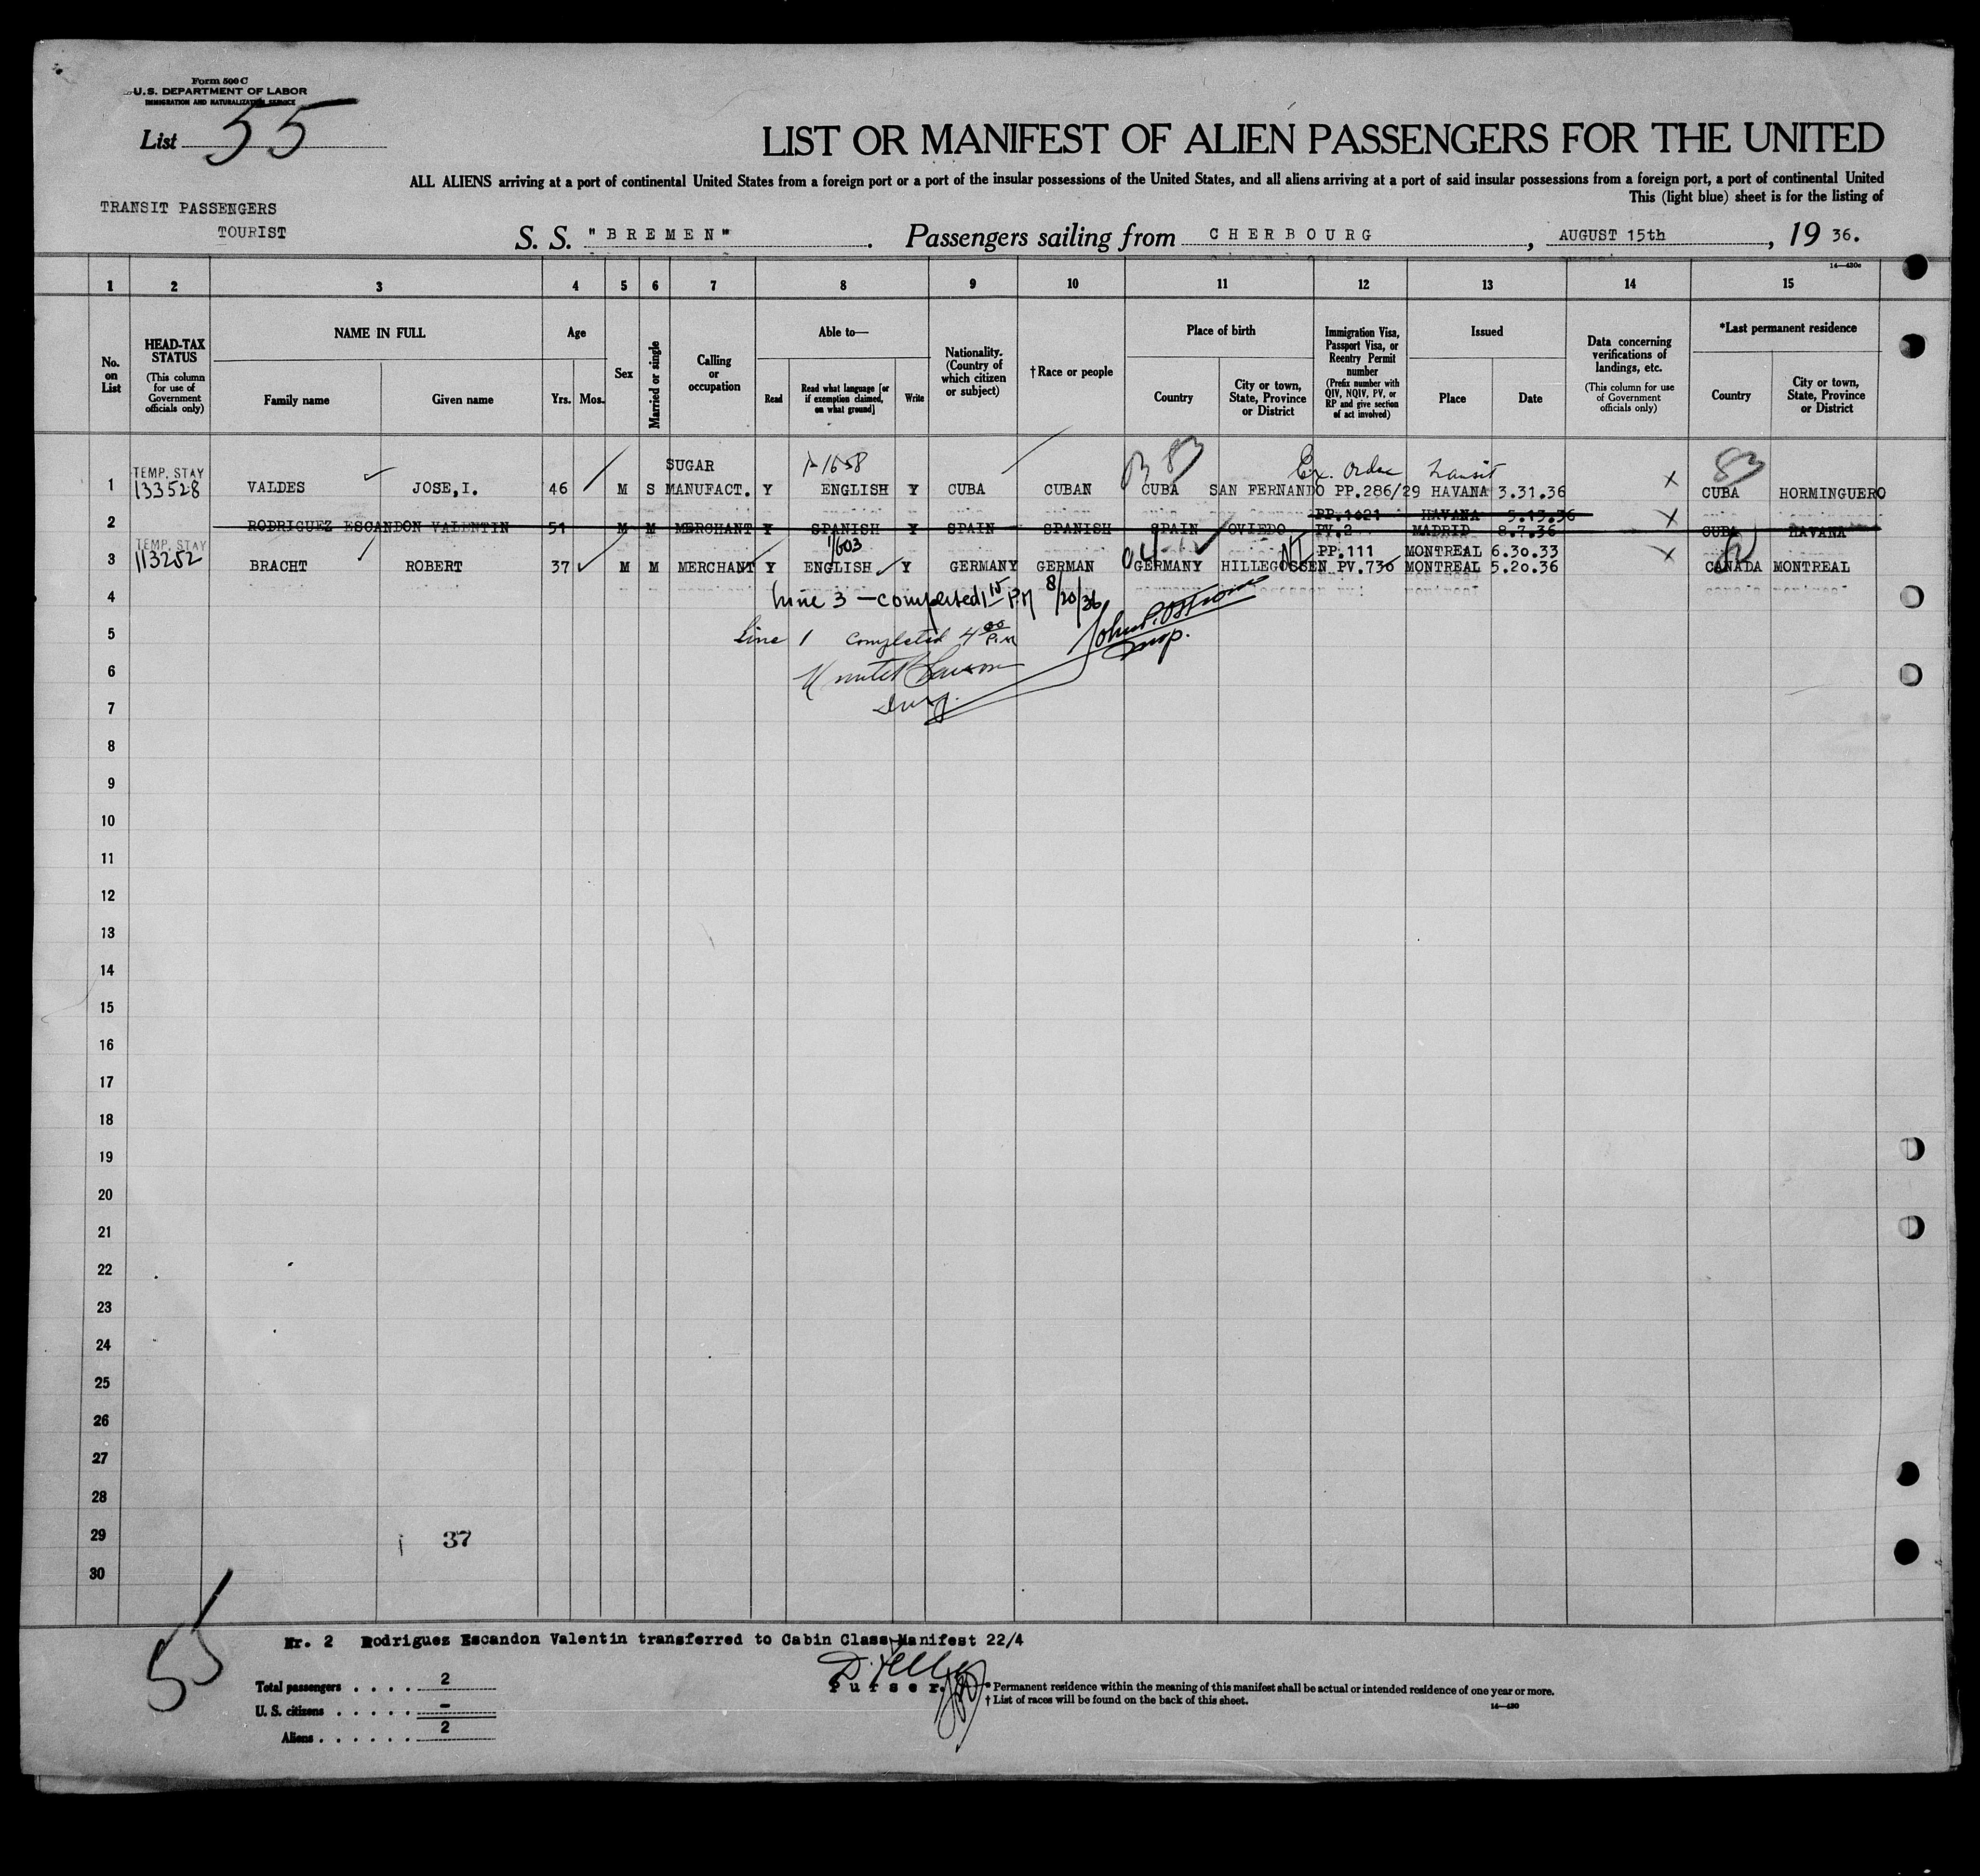 Form 500 C
U.S. DEPARTMENT OF LABOR
IMMIGRATION AND NATURALIZATION SERVICE
List 55
LIST OR MANIFEST OF ALIEN PASSENGERS FOR THE UNITED
ALL ALIENS arriving at a port of continental United States from a foreign port or a port of the insular possessions of the United States, and all aliens arriving at a port of said insular possessions from a foreign port, a port of continental United
This (light blue) sheet is for the listing of
TRANSIT PASSENGERS
TOURIST
S. S. "BREMEN". Passengers sailing from CHERBOURG, AUGUST 15th, 19 36.
14—430c
1 2 3 4 5 6 7 8 9 10 11 12 13 14 15
No. on List
HEAD-TAX STATUS (This column for use of Government officials only)
NAME IN FULL
Family name Given name
Age
Yrs. Mos.
Sex
Married or single
Calling or occupation
Able to—
Read Read what language [or if exemption claimed, on what ground] Write
Nationality. (Country of which citizen or subject)
† Race or people
Place of birth
Country City or town, State, Province or District
Immigration Visa, Passport Visa, or Reentry Permit number (Prefix number with QIV, NQIV, PV, or RP and give section of act involved)
Issued
Place Date
Data concerning verifications of landings, etc. (This column for use of Government officials only)
*Last permanent residence
Country City or town, State, Province or District
TEMP. STAY SUGAR 1-1658 83 Ex. Order Transit 83
1 133528 VALDES JOSE,I. 46 M S MANUFACT. Y ENGLISH Y CUBA CUBAN CUBA SAN FERNANDO PP.286/29 HAVANA 3.31.36 X CUBA HORMINGUERO
PP.1621 HAVANA 5.13.36
2 RODRIGUEZ ESCANDON VALENTIN 51 M M MERCHANT Y SPANISH Y SPAIN SPANISH SPAIN OVIEDO PV.2 MADRID 8.7.36 X CUBA HAVANA
TEMP. STAY 1/603 PP.111 MONTREAL 6.30.33
3 113252 BRACHT ROBERT 37 M M MERCHANT Y ENGLISH Y GERMANY GERMAN GERMANY HILLEGOSSEN PV.730 MONTREAL 5.20.36 X CANADA MONTREAL
4 Line 3 — completed 1 15 PM 8/20/36
5 Line 1 completed 4 00 P.M. Insp.
6
7
8
9
10
11
12
13
14
15
16
17
18
19
20
21
22
23
24
25
26
27
28
29 37
30
55
Nr. 2 Rodriguez Escandon Valentin transferred to Cabin Class Manifest 22/4
Purser.
Total passengers . . . . 2
U. S. citizens . . . . . –
Aliens . . . . . . 2
* Permanent residence within the meaning of this manifest shall be actual or intended residence of one year or more.
† List of races will be found on the back of this sheet.
14—430